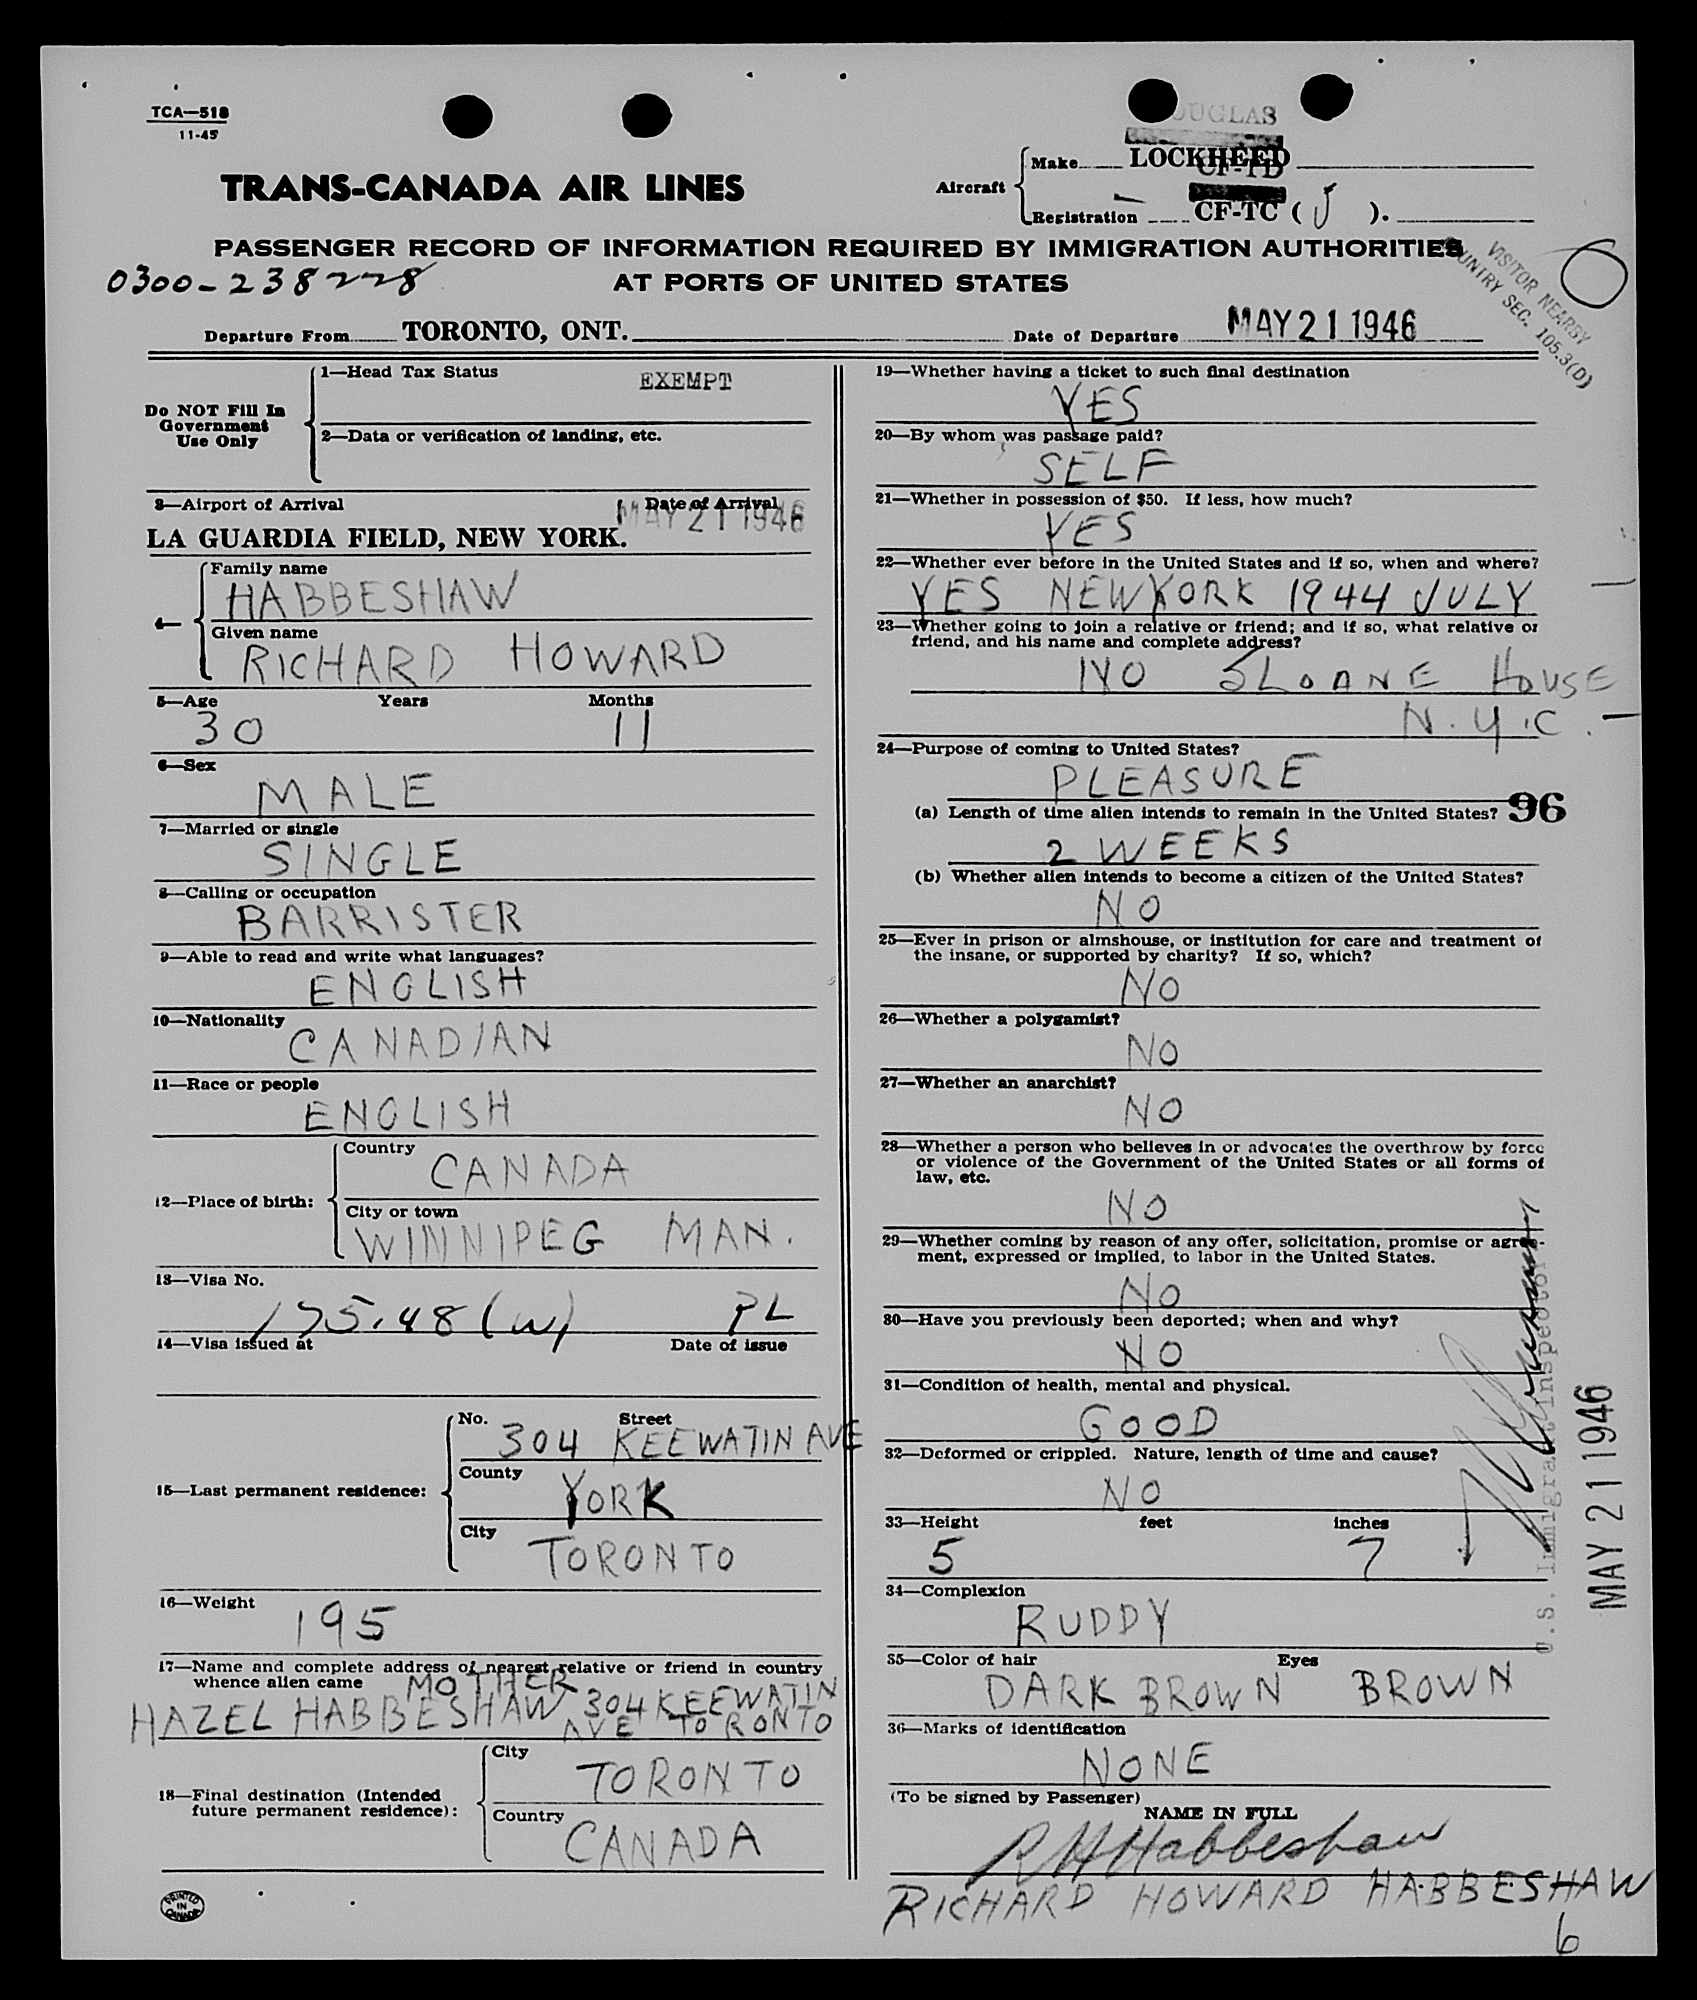 TCA—518
11-45
DOUGLAS
TRANS-CANADA AIR LINES
Aircraft
Make LOCKHEED
CF-TD
Registration CF-TC ( J ).
PASSENGER RECORD OF INFORMATION REQUIRED BY IMMIGRATION AUTHORITIES
AT PORTS OF UNITED STATES
0300-238228
VISITOR NEARBY
COUNTRY SEC. 105.3(D)
Departure From TORONTO, ONT. Date of Departure MAY 21 1946
Do NOT Fill In
Government
Use Only
1—Head Tax Status EXEMPT
2—Data or verification of landing, etc.
3—Airport of Arrival Date of Arrival
MAY 21 1946
LA GUARDIA FIELD, NEW YORK.
4—
Family name
HABBESHAW
Given name
RICHARD HOWARD
5—Age Years Months
30 11
6—Sex
MALE
7—Married or single
SINGLE
8—Calling or occupation
BARRISTER
9—Able to read and write what languages?
ENGLISH
10—Nationality
CANADIAN
11—Race or people
ENGLISH
12—Place of birth:
Country
CANADA
City or town
WINNIPEG MAN.
13—Visa No.
175.48 (W) PL
14—Visa issued at Date of issue
15—Last permanent residence:
No. Street
304 KEEWATIN AVE
County
YORK
City
TORONTO
16—Weight
195
17—Name and complete address of nearest relative or friend in country
whence alien came MOTHER
HAZEL HABBESHAW 304 KEEWATIN
AVE TORONTO
18—Final destination (Intended
future permanent residence):
City
TORONTO
Country
CANADA
PRINTED
IN
CANADA
19—Whether having a ticket to such final destination
YES
20—By whom was passage paid?
SELF
21—Whether in possession of $50. If less, how much?
YES
22—Whether ever before in the United States and if so, when and where?
YES NEW YORK 1944 JULY
23—Whether going to join a relative or friend; and if so, what relative or
friend, and his name and complete address?
NO SLOANE HOUSE
N.Y.C.
24—Purpose of coming to United States?
PLEASURE
(a) Length of time alien intends to remain in the United States? 96
2 WEEKS
(b) Whether alien intends to become a citizen of the United States?
NO
25—Ever in prison or almshouse, or institution for care and treatment of
the insane, or supported by charity? If so, which?
NO
26—Whether a polygamist?
NO
27—Whether an anarchist?
NO
28—Whether a person who believes in or advocates the overthrow by force
or violence of the Government of the United States or all forms of
law, etc.
NO
29—Whether coming by reason of any offer, solicitation, promise or agree-
ment, expressed or implied, to labor in the United States.
NO
30—Have you previously been deported; when and why?
NO
31—Condition of health, mental and physical.
GOOD
32—Deformed or crippled. Nature, length of time and cause?
NO
33—Height feet inches
5 7
34—Complexion
RUDDY
35—Color of hair Eyes
DARK BROWN BROWN
36—Marks of identification
NONE
(To be signed by Passenger)
NAME IN FULL
R H Habbeshaw
RICHARD HOWARD HABBESHAW
6
U.S. Immigrant Inspector
MAY 21 1946